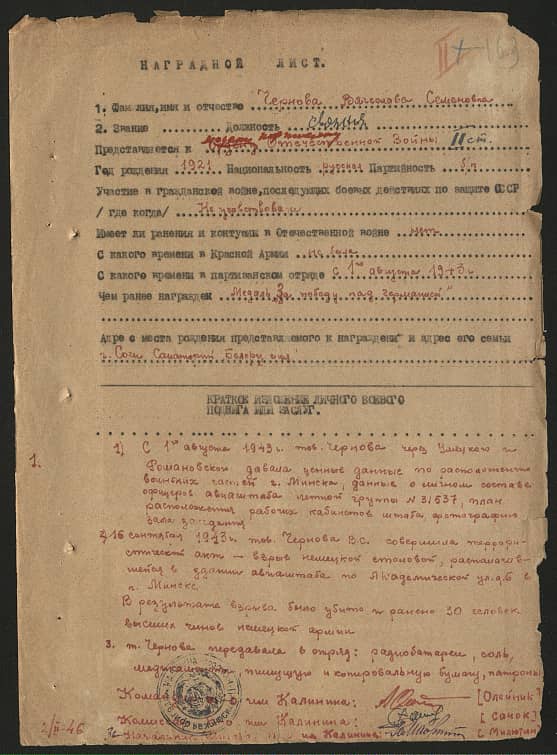 НАГРАДНОЙ ЛИСТ.
1. Фамилия, имя и отчество Чернова Вячеслова Семеновна
2. Звание Должность связная
Представляется к Отечественной Войны II ст.
Год рождения 1921 Национальность русская Партийность б/п
Участие в гражданской войне, последующих боевых действиях по защите СССР
/где когда/ Не участвовала
Имеет ли ранения и контузии в Отечественной войне нет
С какого времени в Красной Армии не была
С какого времени в партизанском отряде с 1го августа 1943 г.
Чем ранее награжден Медаль "За победу над Германией"
Адрес места рождения представляемого к награждени и адрес его семьи
г. Сочи Санаторий
КРАТКОЕ ИЗЛОЖЕНИЕ ЛИЧНОГО БОЕВОГО
ПОДВИГА ИЛИ ЗАСЛУГ.
1.
1) С 1го августа 1943 г. тов. Чернова через и
Романовской давала ценные данные по расположению
воинских частей г. Минска, данные о личном составе
офицеров авиаштаба летной группы № 31537, план
расположения рабочих кабинетов штаба, фотографию
зала заседения
2) 16 сентября 1943 г. тов. Чернова В.С. совершила террори-
стический акт – взрыв немецкой столовой, располагав-
шейся в здании авиаштаба по Академической ул. д. 6 в
г. Минске
В результате взрыва было убито и ранено 30 человек
высших чинов немецкой армии
3. т. Чернова передавала в отряд: радиобатареи, соль,
медикаменты, пишущую и копировальную бумагу, патроны
Командир им Калинина: [Олейник]
Комиссар им Калинина: [Санок]
Начальник им Калинина: [Милютин]
2/II-46